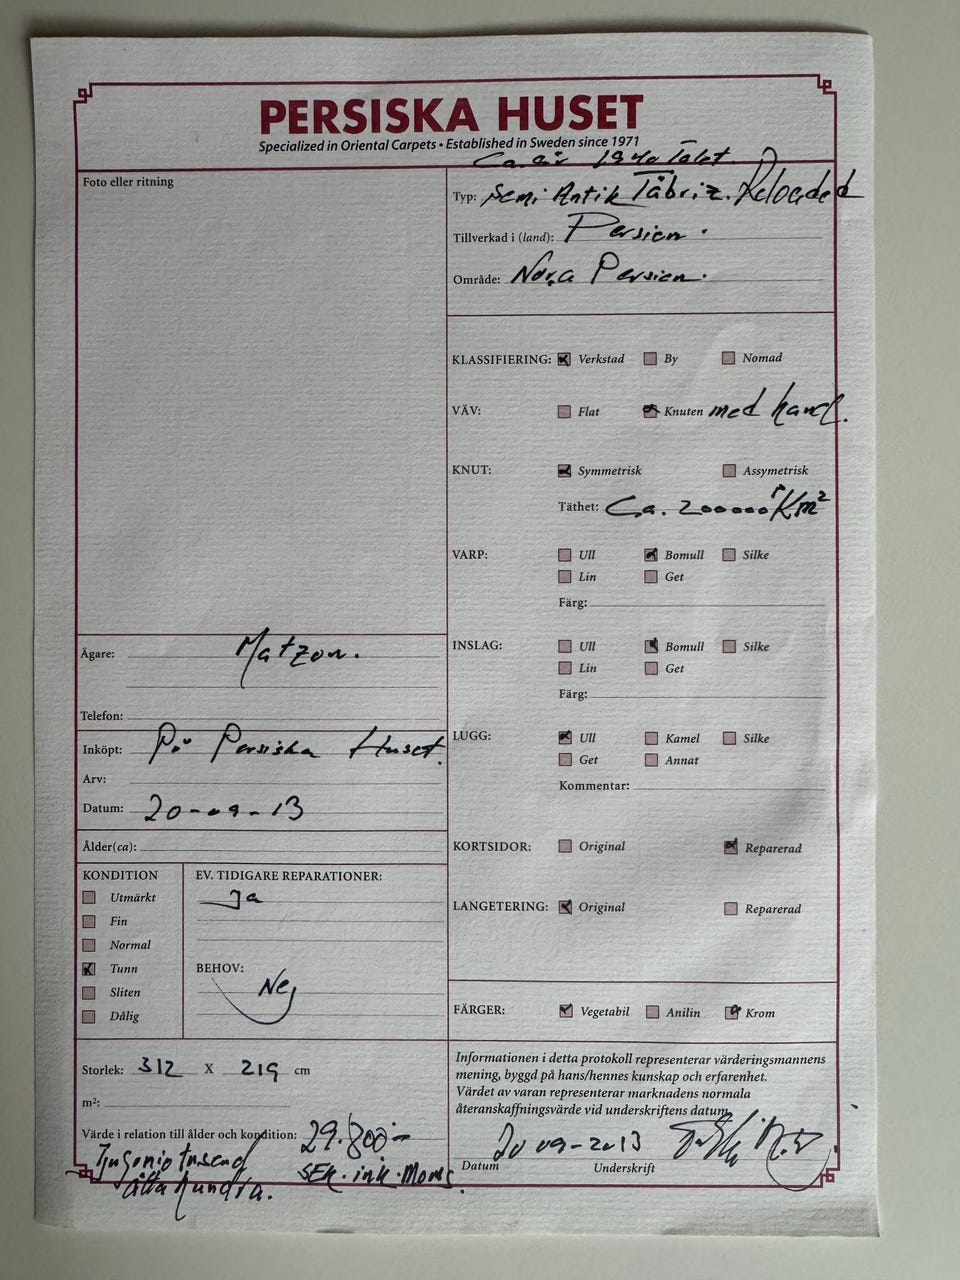 PERSISKA HUSET
Specialized in Oriental Carpets • Established in Sweden since 1971
Ca. år 1940 Talet.
Foto eller ritning
Typ: Semi Antik Täbriz. Reloaded
Tillverkad i (land): Persien.
Område: Norra Persien.
KLASSIFIERING: Verkstad By Nomad
VÄV: Flat Knuten med hand.
KNUT: Symmetrisk Assymetrisk
Täthet: Ca. 200000 K m²
VARP: Ull Bomull Silke
Lin Get
Färg:
INSLAG: Ull Bomull Silke
Lin Get
Färg:
LUGG: Ull Kamel Silke
Get Annat
Kommentar:
KORTSIDOR: Original Reparerad
LANGETERING: Original Reparerad
FÄRGER: Vegetabil Anilin Krom
Ägare: Matzon.
Telefon:
Inköpt: På Persiska Huset.
Arv:
Datum: 20-09-13
Ålder(ca):
KONDITION
Utmärkt
Fin
Normal
Tunn
Sliten
Dålig
EV. TIDIGARE REPARATIONER:
Ja
BEHOV:
Nej
Storlek: 312 X 219 cm
m²:
Värde i relation till ålder och kondition: 29.800:-
Tjugonio tusend
åtta hundra.
SEK. ink. Moms.
Informationen i detta protokoll representerar värderingsmannens
mening, byggd på hans/hennes kunskap och erfarenhet.
Värdet av varan representerar marknadens normala
återanskaffningsvärde vid underskriftens datum.
20 09-2013
Datum Underskrift